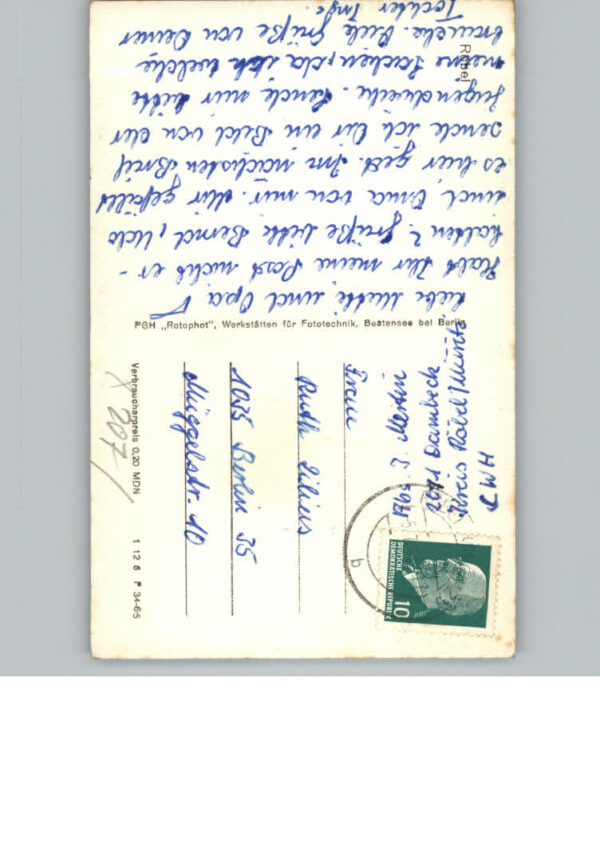 Röbel
Liebe Mutti und Opa!
Habt Ihr meine Post nicht er-
halten? Grüße bitte Bernd, Udo
und Oma von mir. Mir gefällt
es hier gut. Im nächsten Brief
sende ich Dir ein Bild von der
Jugendweihe. Sende mir bitte
meine Sachen, da ich welche
brauche. Viele Grüße von Deiner
Tochter Inge.
PGH „Rotophot“, Werkstätten für Fototechnik, Bestensee bei Berlin
Abs. I. Merlin
2071 Dambeck
Kreis Röbel/Müritz
LWH
DEUTSCHE
DEMOKRATISCHE REPUBLIK
10
b
Frau
Ruth
1035 Berlin 35
Müggelstr. 10
Verbraucherpreis 0,20 MDN
1 12 8 F 34-65
207